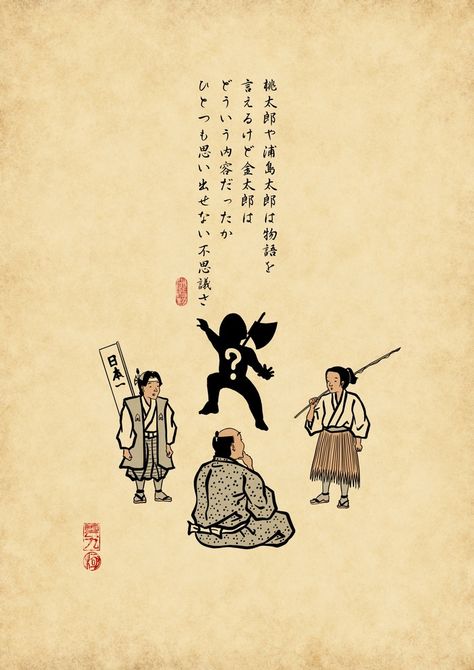 桃太郎や浦島太郎は物語を
言えるけど金太郎は
どういう内容だったか
ひとつも思い出せない不思議さ
日本一
?